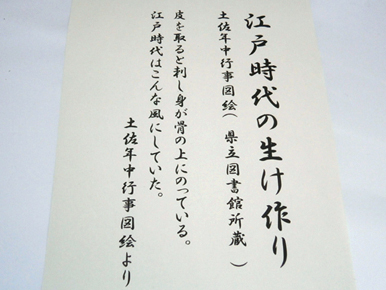 江戸時代の生け作り
土佐年中行事図絵(県立図書館所蔵)
皮を取ると刺し身が骨の上にのっている。
江戸時代はこんな風にしていた。
土佐年中行事図絵より